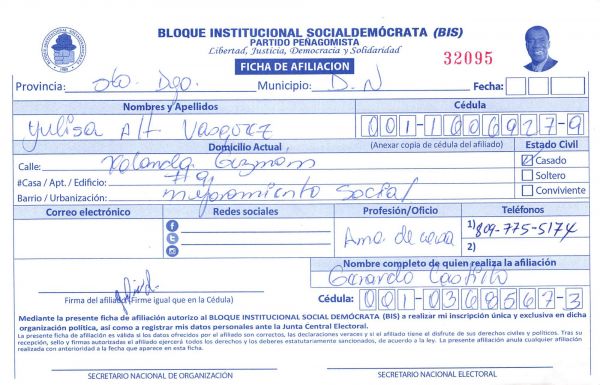 BLOQUE INSTITUCIONAL SOCIALDEMÓCRATA (BIS)
PARTIDO PEÑAGOMISTA
Libertad, Justicia, Democracia y Solidaridad
FICHA DE AFILIACION
32095
Provincia: Sto. Dgo. Municipio: D. N Fecha:
Nombres y Apellidos
Cédula
Yulisa Alt Vasquez
001-1606927-9
Domicilio Actual
(Anexar copia de cédula del afiliado)
Estado Civil
Calle: Yolanda Guzman
Casado
#Casa / Apt. / Edificio: #9
Soltero
Barrio / Urbanización: mejoramiento Social
Conviviente
Correo electrónico
Redes sociales
Profesión/Oficio
Teléfonos
Ama de casa
1) 809-775-5174
2)
Nombre completo de quien realiza la afiliación
Gerardo Castillo
Firma del afiliado (Firme igual que en la Cédula)
Cédula: 001-0368567-3
Mediante la presente ficha de afiliación autorizo al BLOQUE INSTITUCIONAL SOCIAL DEMÓCRATA (BIS) a realizar mi inscripción única y exclusiva en dicha
organización política, así como a registrar mis datos personales ante la Junta Central Electoral.
La presente ficha de afiliación es válida si los datos ofrecidos por el afiliado son correctos, las declaraciones veraces y si el afiliado tiene el disfrute de sus derechos civiles y políticos. Tras su
recepción, sello y firmas autorizadas el afiliado ejercerá todos los derechos y los deberes estatutariamente sancionados, de acuerdo a la ley. La presente afiliación anula cualquier afiliación
realizada con anterioridad a la fecha que aparece en esta ficha.
SECRETARIO NACIONAL DE ORGANIZACIÓN
SECRETARIO NACIONAL ELECTORAL